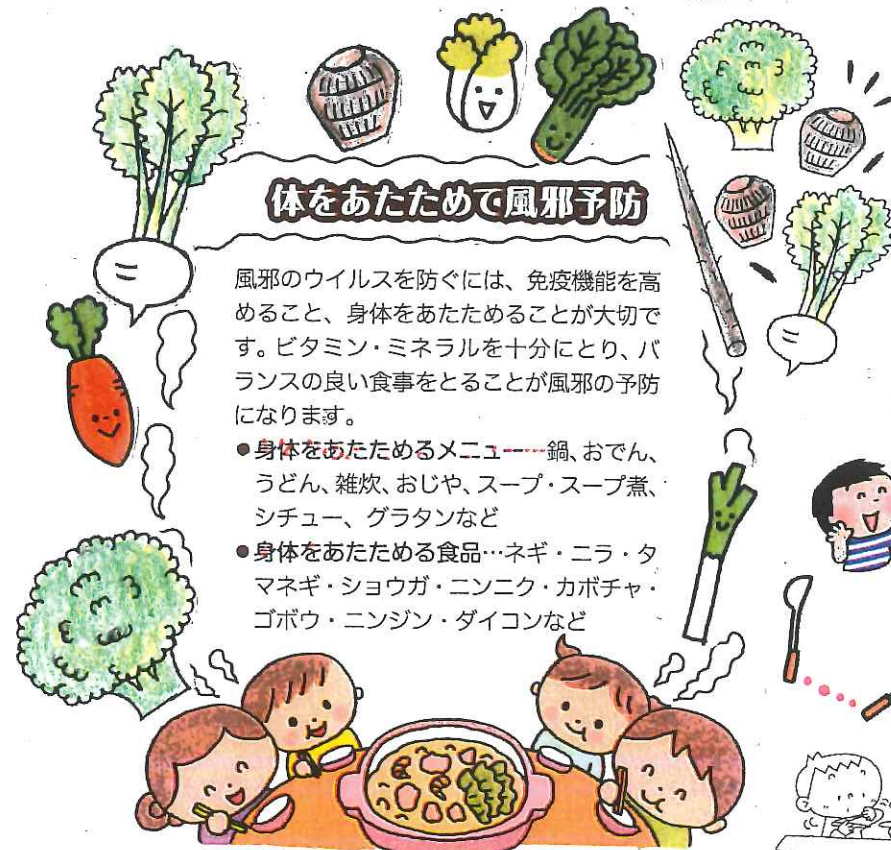 体をあたためて風邪予防
風邪のウイルスを防ぐには、免疫機能を高
めること、身体をあたためることが大切で
す。ビタミン・ミネラルを十分にとり、バ
ランスの良い食事をとることが風邪の予防
になります。
●身体をあたためるメニュー…鍋、おでん、
うどん、雑炊、おじや、スープ・スープ煮、
シチュー、グラタンなど
●身体をあたためる食品…ネギ・ニラ・タ
マネギ・ショウガ・ニンニク・カボチャ・
ゴボウ・ニンジン・ダイコンなど